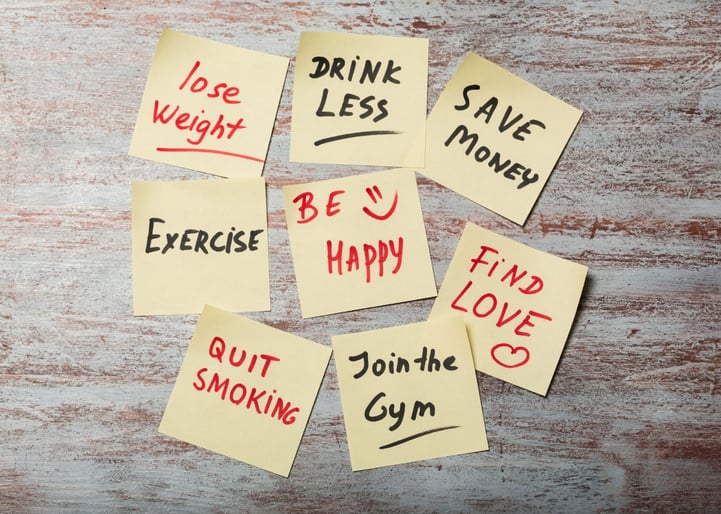 lose
Weight
DRINK
LESS
SAVE
MONEY
EXERCISE
BE
HAPPY
FIND
LOVE
QUIT
SMOKING
Join the
Gym